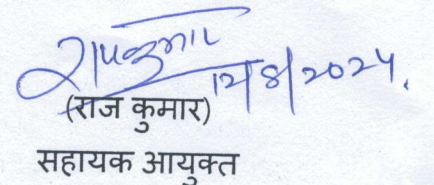 राजकुमार
12/8/2024.
(राज कुमार)
सहायक आयुक्त